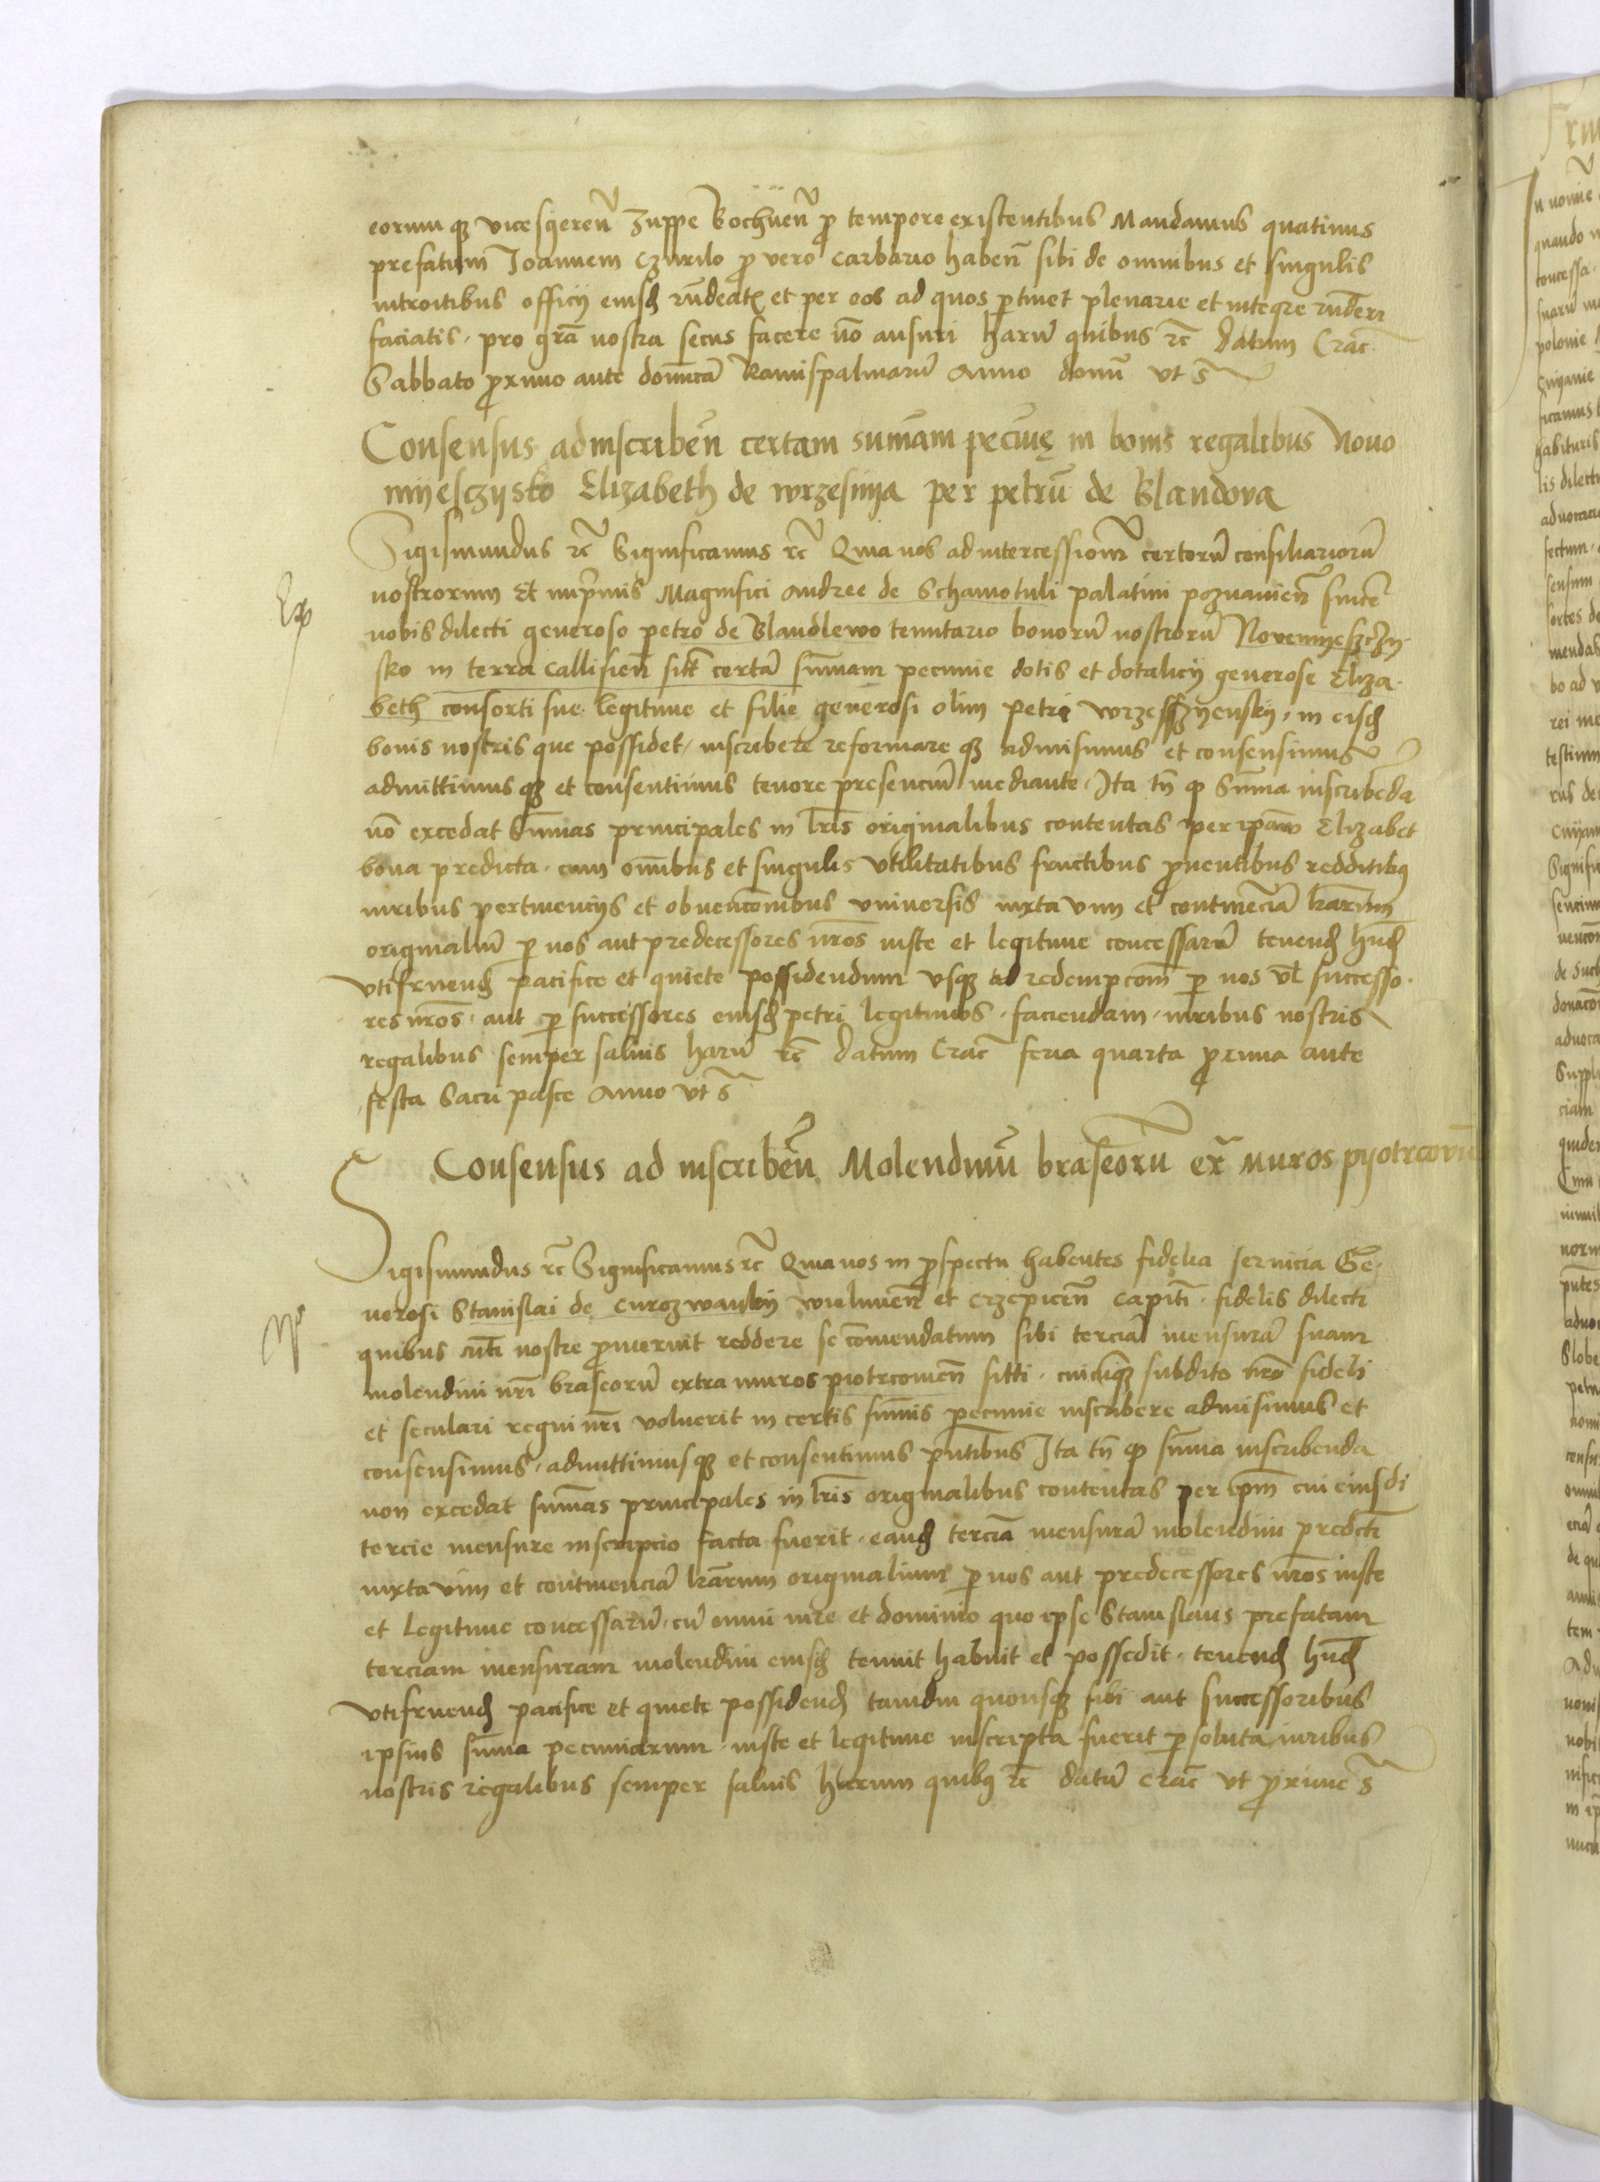 eorumq; vicesgeren̄ zuppe Bochnen̄ p tempore existentibus Mandamus quatinus
prefatum Joannem Czurilo p vero carbario haben̄ sibi de omnibus et singulis
introitibus officij eiusd rn̄deatᷓ et per eos ad quos ptinet plenarie et integre rn̄deri
faciatis · pro gr̄a nostra secus facere nō ausuri harū quibus rc̄ datum Crac̄
Sabbato proximo ante domīcā Ramispalmarū Anno domī vt s̄
Consensus adinscriben̄ certam sum̄am pecunię in bonis regalibus Novo
myesczysko Elizabeth de wrzesinya per petrū de Blandova
Sigismundus rc̄ Significamus rc̄ Quia nos ad intercessionem certorū consiliariorū
nostrorum Et inprimis Magnifici Andree de Schamotuli palatini poznanien̄ sincē
nobis dilecti generoso petro de Blandlewo tenutario bonorū nostrorū Novemyesczy
sko in terra callisien̄ sit̄ certā sum̄am pecunie dotis et dotalicij generose Eliza-
beth consorti sue legitime et filie generosi olim petri wrzessznyensky, in eisd
bonis nostris que possidet, inscribere reformareq; admisimus et consensimus
admittimusq; et consentimus tenore presenciū mediante · Ita tn̄ q Sum̄a inscribēda
nō excedat sum̄as principales in lr̄is originalibus contentas per ip̄am Elizabet
bona predicta · cum om̄ibus et singulis vtilitatibus fructibus proventibus redditib9
iuribus pertinencijs et obvencōnibus vniversis iuxta vim et continēciā lr̄arum
originaliū p nos aut predecessores nr̄os iuste et legitime concessarū tenend hn̄d
vtifruend pacifice et quiete possidendum vsq; ad redempcōem p nos vl̄ successo-
res nr̄os · aut p successores eiusd petri legitimos · faciendam · iuribus nostris
regalibus semper salvis harū rc̄ datum Crac̄ feria quarta proxima ante
festa Sacri pasce Anno vt s̄
Consensus ad inscriben̄ Molendinū braseorū exr̄ muros pyotrcovien̄
Sigismundus rc̄ Significamus rc̄ Quia nos in prospectu habentes fidelia servicia Ge-
Ex
nerosi Stanislai de Curozwanky wielunen̄ et crzepicen̄ capiti · fidelis dilecti
quibus mti nostre promeruit reddere se cōmendatum sibi terciā mensurā suam
Mr
molendini nr̄i braseorū extra muros piotrcovien̄ sitti · cuicūq; subdito nr̄o fideli
et seculari regni nr̄i voluerit in certis sum̄is pecunie inscribere admisimus et
consensimus · admittimusq; et consentimus pn̄tibus Ita tn̄ q sum̄a inscribenda
non excedat sum̄as principales in lr̄is originalibus contentas per ip̄m cui eiusdi
tercie mensure inscripcio facta fuerit · eand terciā mensurā molendini predcti
iuxta vim et continenciā lr̄arum originalium p nos aut predecessores nr̄os iuste
et legitime concessarū · cū omni iure et dominio quo ipse Stanislaus prefatam
terciam mensuram molendini eiusd tenuit habuit et possedit · tenend hn̄d
vtifruend pacifice et quiete possidend tamdiu quousq; sibi aut successoribus
ipsius sum̄a pecuniarum · iuste et legitime inscripta fuerit psoluta, iuribus
nostris regalibus semper salvis harum quib9 rc̄ datū Crac̄ vt proxime s̄